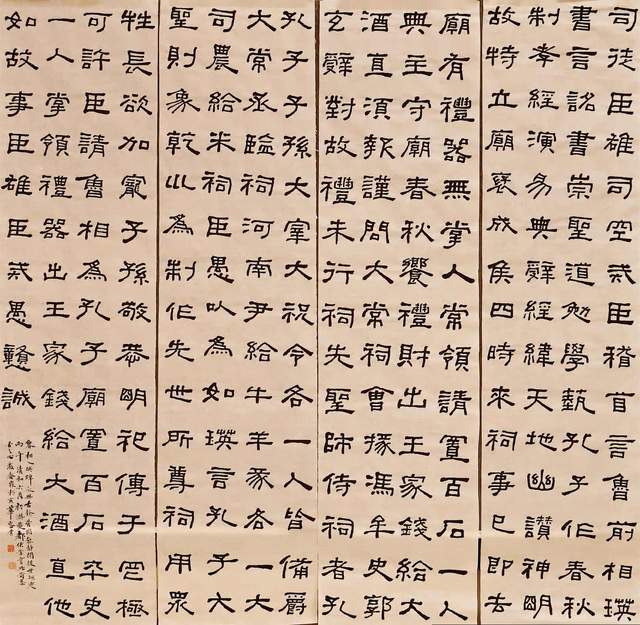 司徒臣雄司空戒臣稽首言魯前相瑛
書言詔書崇聖道勉學藝孔子作春秋
制孝經演易典辭經緯天地幽讚神明
故特立廟褒成侯四時來祠事已即去
廟有禮器無掌人常領請置百石一人
典主守廟春秋饗禮財出王家錢給大
酒直須報謹問大常祠曹掾馮牟史郭
玄辭對故禮未行祠先聖師侍祠者孔
孔子子孫大宰大祝令各一人皆備爵
大常丞監祠河南尹給牛羊豕各一大
司農給米祠臣愚以為如瑛言孔子大
聖則象乾巛為制作先世所尊祠用眾
牲長欲加寵子孫敬恭明祀傳于罔極
可許臣請魯相為孔子廟置百石卒史
一人掌領禮器出王家錢給大酒直他
如故事臣雄臣戒愚戇誠